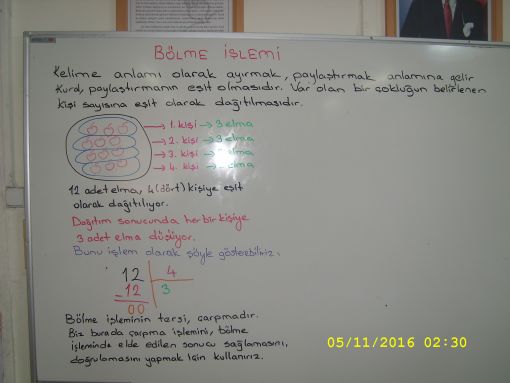 BÖLME İŞLEMİ
Kelime anlamı olarak ayırmak, paylaştırmak anlamına gelir
Kural, paylaştırmanın eşit olmasıdır. Var olan bir çokluğun belirlenen
kişi sayısına eşit olarak dağıtılmasıdır.
1. kişi → 3 elma
2. kişi → 3 elma
3. kişi → elma
4. kişi → elma
12 adet elma, 4 (dört) kişiye eşit
olarak dağıtılıyor.
Dağıtım sonucunda her bir kişiye
3 adet elma düşüyor.
Bunu işlem olarak şöyle gösterebiliriz:
12 4
- 12 3
00
Bölme işleminin tersi, çarpmadır.
Biz burada çarpma işlemini, bölme
işleminde elde edilen sonucu sağlamasını,
doğrulamasını yapmak için kullanırız.
05/11/2016 02:30